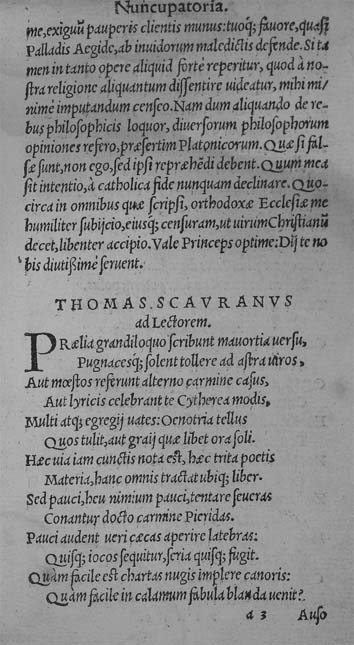 Nuncupatoria.
me, exiguũ pauperis clientis munus: tuoq; fauore, quasi
Palladis Aegide, ab inuidorum maledictis defende. Si ta
men in tanto opere aliquid forte reperitur, quod à no-
stra religione aliquantum dissentire uideatur, mihi mi/
nime imputandum censeo. Nam dum aliquando de re-
bus philosophicis loquor, diuersorum philosophorum
opiniones refero, præsertim Platonicorum. Quæ si fal-
sæ sunt, non ego, sed ipsi repræhẽdi debent. Quum mea
sit intentio, à catholica fide nunquam declinare. Quo-
circa in omnibus quæ scripsi, orthodoxæ Ecclesiæ me
humiliter subijcio, eiusq; censuram, ut uirum Christianũ
decet, libenter accipio. Vale Princeps optime: Dij te no
bis diutissime seruent.
THOMAS. SCAVRANVS
ad Lectorem.
PRælia grandiloquo scribunt mauortia uersu,
Pugnacesq; solent tollere ad astra uiros,
Aut mœstos referunt alterno carmine casus,
Aut lyricis celebrant te Cytherea modis,
Multi atq; egregij uates: Oenotria tellus
Quos tulit, aut graij quæ libet ora soli.
Hæc uia iam cunctis nota est, hæc trita poetis
Materia, hanc omnis tractat ubiq; liber.
Sed pauci, heu nimium pauci, tentare seueras
Conantur docto carmine Pieridas.
Pauci audent ueri cæcas aperire latebras:
Quisq; iocos sequitur, seria quisq; fugit.
Quàm facile est chartas nugis implere canoris:
Quàm facile in calamum fabula blanda uenit?
a 3 Auso